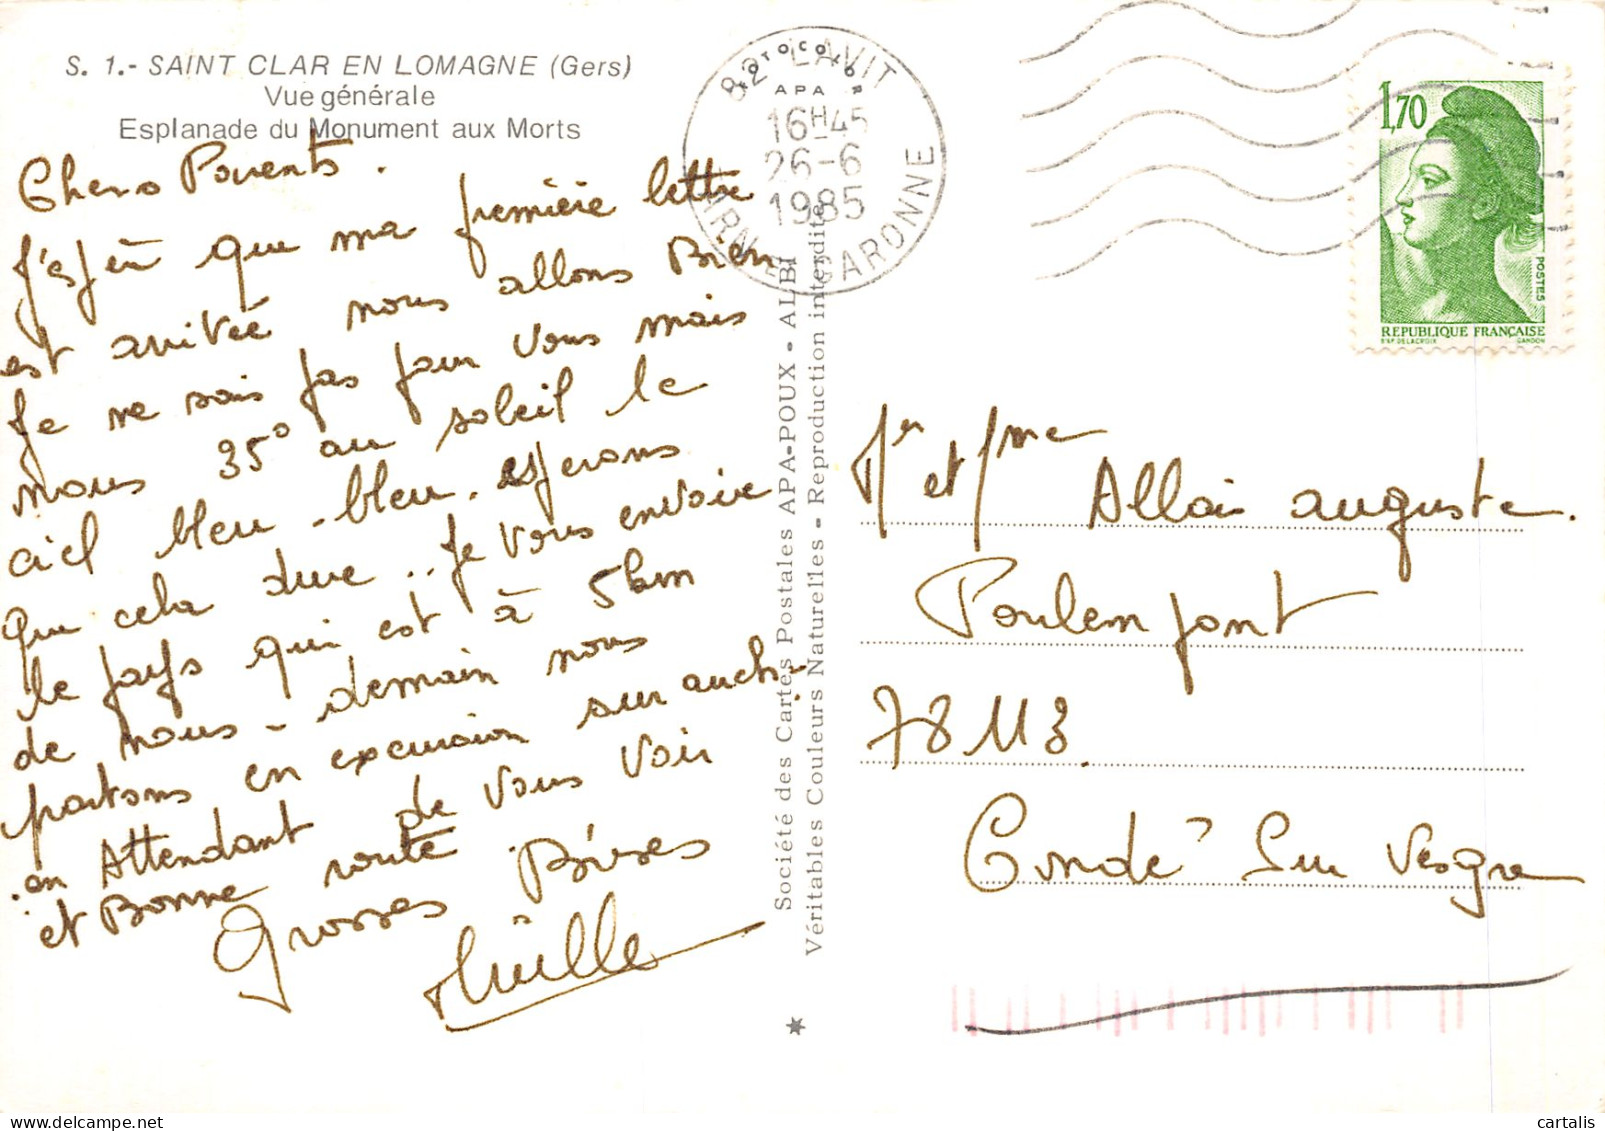 S. 1.- SAINT CLAR EN LOMAGNE (Gers)
Vue générale
Esplanade du Monument aux Morts
Chers Parents.
J'espère que ma première lettre
est arrivée nous allons Bien
Je ne sais pas pour vous mais
nous 35° au soleil le
ciel bleu-bleu. espérons
que cela dure.. Je vous envoie
le pays qui est à 5km
de nous - demain nous
partons en excursion sur auch-
en Attendant de vous voir
et Bonne route
Grosses Bises
82 LAVIT
16H45
26-6
1985
GARONNE
1,70
POSTES
REPUBLIQUE FRANÇAISE
D'AP. DELACROIX GANDON
Société des Cartes Postales APA-POUX - ALBI
Véritables Couleurs Naturelles - Reproduction interdite
Mr et Mme
Allais auguste.
Poulempont
78113
Condé Sur Vesgre
cartalis